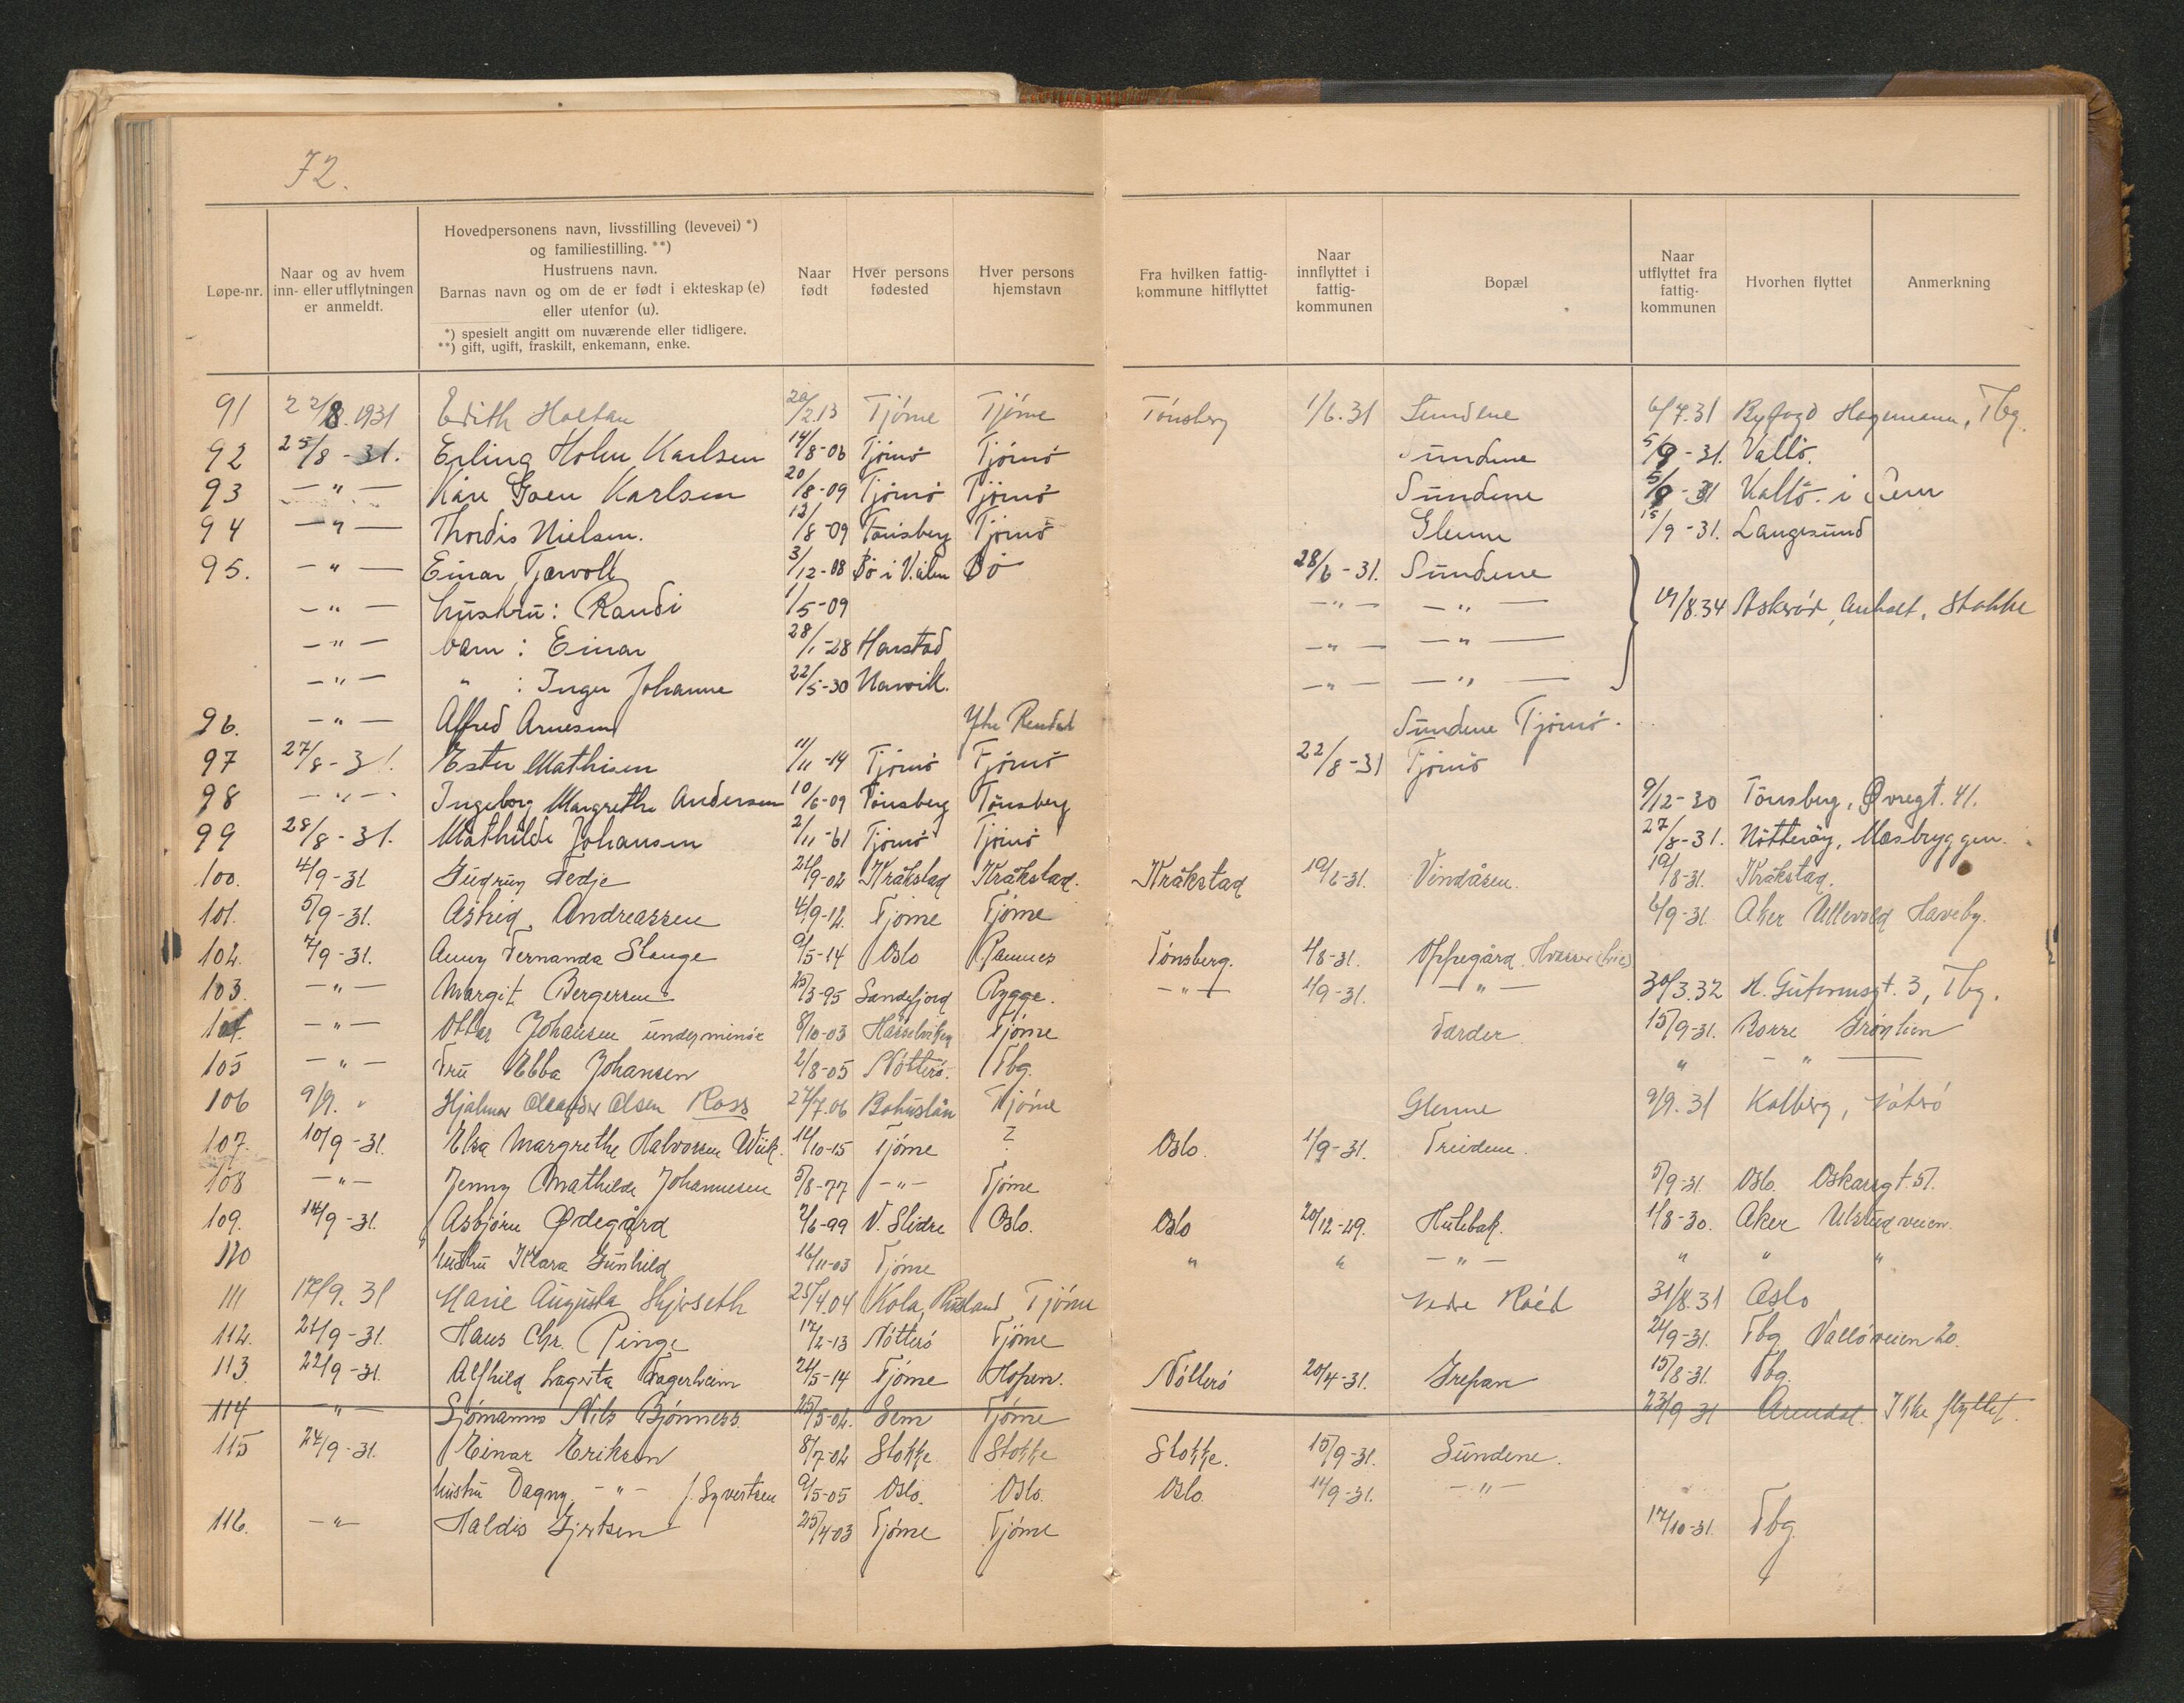 72.
Løpe-nr. Naar og av hvem inn- eller utflytningen er anmeldt. Hovedpersonens navn, livsstilling (levevei) *) og familiestilling. **) Hustruens navn. Barnas navn og om de er født i ekteskap (e) eller utenfor (u). *) spesielt angitt om nuværende eller tidligere. **) gift, ugift, fraskilt, enkemann, enke. Naar født Hver persons fødested Hver persons hjemstavn Fra hvilken fattig-kommune hitflyttet Naar innflyttet i fattig-kommunen Bopæl Naar utflyttet fra fattig-kommunen Hvorhen flyttet Anmerkning
91 22/8.1931 Edith Holtan 20/2.13 Tjöme Tjöme Tönsberg 1/6.31 Sundene 6/7.31 Byfogd Hagemann, Tbg.
92 25/8-31. Erling Holm Karlsen 14/8-06 Tjömö Tjömö Sundene 5/9-31. Vallö.
93 -"- Kåre Karlsen 20/8-09 Tjömö Tjömö Sundene 5/9-31 Vallö i Sem
94 -"- Thordis Nielsen. 12/8-09 Tönsberg Tjömö Glenne 15/9-31. Langesund
95. -"- Einar Tjærvoll 3/12-08 Bö i V.ålen Bö 28/6-31. Sundene
-"- hustru: Randi 1/5-09 -"- -"- 19/8.34 Askeröd, Anholt, Stokke
-"- barn: Einar 28/1-28 Harstad -"- -"-
-"- " : Inger Johanne 22/5-30 Narvik. -"- -"-
96. -"- Alfred Arnesen Ytre Rendal Sundene Tjömö.
97 27/8-31. Ester Mathisen 11/11-14 Tjömö Tjömö 22/8-31 Tjömö
98 -"- Ingeborg Margrethe Andersen 10/6-09 Tönsberg Tönsberg 9/12-30 Tönsberg, Øvregt. 41.
99 28/8-31. Mathilde Johansen 2/11-61 Tjömö Tjömö 27/8-31. Nötteröy, Mæsbryggen.
100. 4/9-31 Gudrun Tedje 21/9-02 Kråkstad Kråkstad. Kråkstad 19/6-31. Vindåsen. 19/8-31. Kråkstad.
101. 5/9-31. Astrid Andreassen 4/9-12. Tjöme Tjöme 6/9-31. Aker Ullevold Haveby.
102. 7/9-31. Anny Fernanda Stange 9/5-14 Oslo Ramnes Tönsberg. 1/8-31. Oppegård.
103. -"- Margit Bergersen 25/3-95 Sandefjord Rygge. -"- 1/9-31. -"- 30/3.32 H. Gutormsgt. 3, Tbg.
104. -"- Ottar Johansen 8/10-03 Hasselviken Tjöme Færder 15/9-31. Borre Grönlien
105 -"- Fru Ebba Johansen 2/8-05 Nötterö. Tbg. " -"-
106 9/9. " Hjalmar Olsen Ross 27/7.06 Bohuslän Tjöme Glenne 9/9.31 Kolberg, Nötrö
107. 10/9-31. Elsa Margrethe Halvorsen Wiik. 11/10-15 Tjöme ? Oslo. 1/9-31. Treidene. 
108 -"- Jenny Mathilde Johannesen 5/8-77 -"- Tjöme 5/9-31. Oslo. Oskarsgt. 51.
109. 14/9-31. Asbjörn Ødegård 2/6-99 V. Slidre Oslo. Oslo 20/12-29. Hulebak. 1/8-30. Aker Ulsrudveien.
110 hustru Klara Gunhild 16/11-03 Tjöme " " -"- " " "
111 17/9.31 Marie Augusta Skjerseth 25/4.04 Kola, Rusland Tjöme Nedre Roéd 31/8.31 Oslo
112. 21/9-31. Hans Chr. Pinge 17/2-13 Nötterö Tjöme 21/9-31. Tbg. Vallöveien 20.
113. 22/9-31. Alfhild Lagerta Fagerheim 21/5-14 Tjöme Hopen. Nötterö 20/4-31. Grepan 15/8-31. Tbg.
114 -"- Sjömann Nils Bjönness 25/5-02. Sem Tjöme 23/9 31 Arendal. Ikke flyttet.
115 24/9-31. Einar Eriksen 8/7-02 Stokke Stokke Stokke. 15/9-31. Sundene.
hustru Dagny -"- f. Syvertsen 9/5-05 Oslo. Oslo. Oslo. 14/9-31. -"-
116. -"- Haldis Gjertsen 25/4-03 Tjöme Tjöme 17/10-31. Tbg.